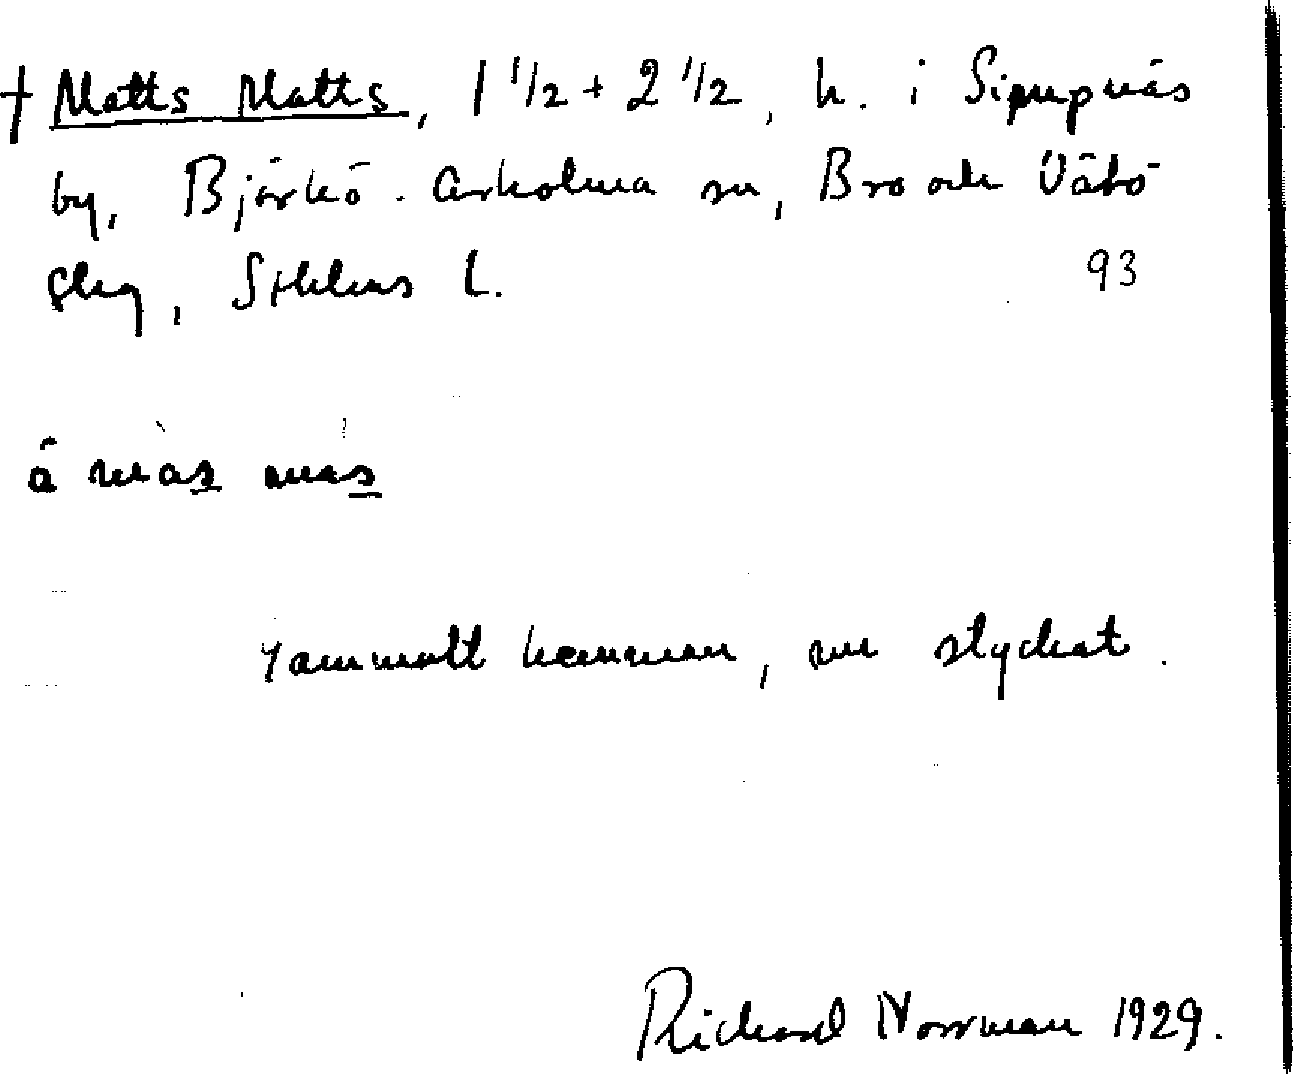 † Matts Matts, 1 1/2 + 2 1/2, h. i Simpnäs
by, Björkö-Arholma sn, Bro och Vätö
skg, Sthlms L. 93
å màs mas
Gammalt hemman, nu styckat.
Richard Norrman 1929.